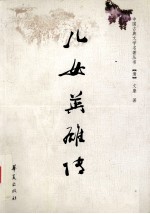 中国古典文学名著丛书
【清】文康 著
儿女英雄传
华夏出版社